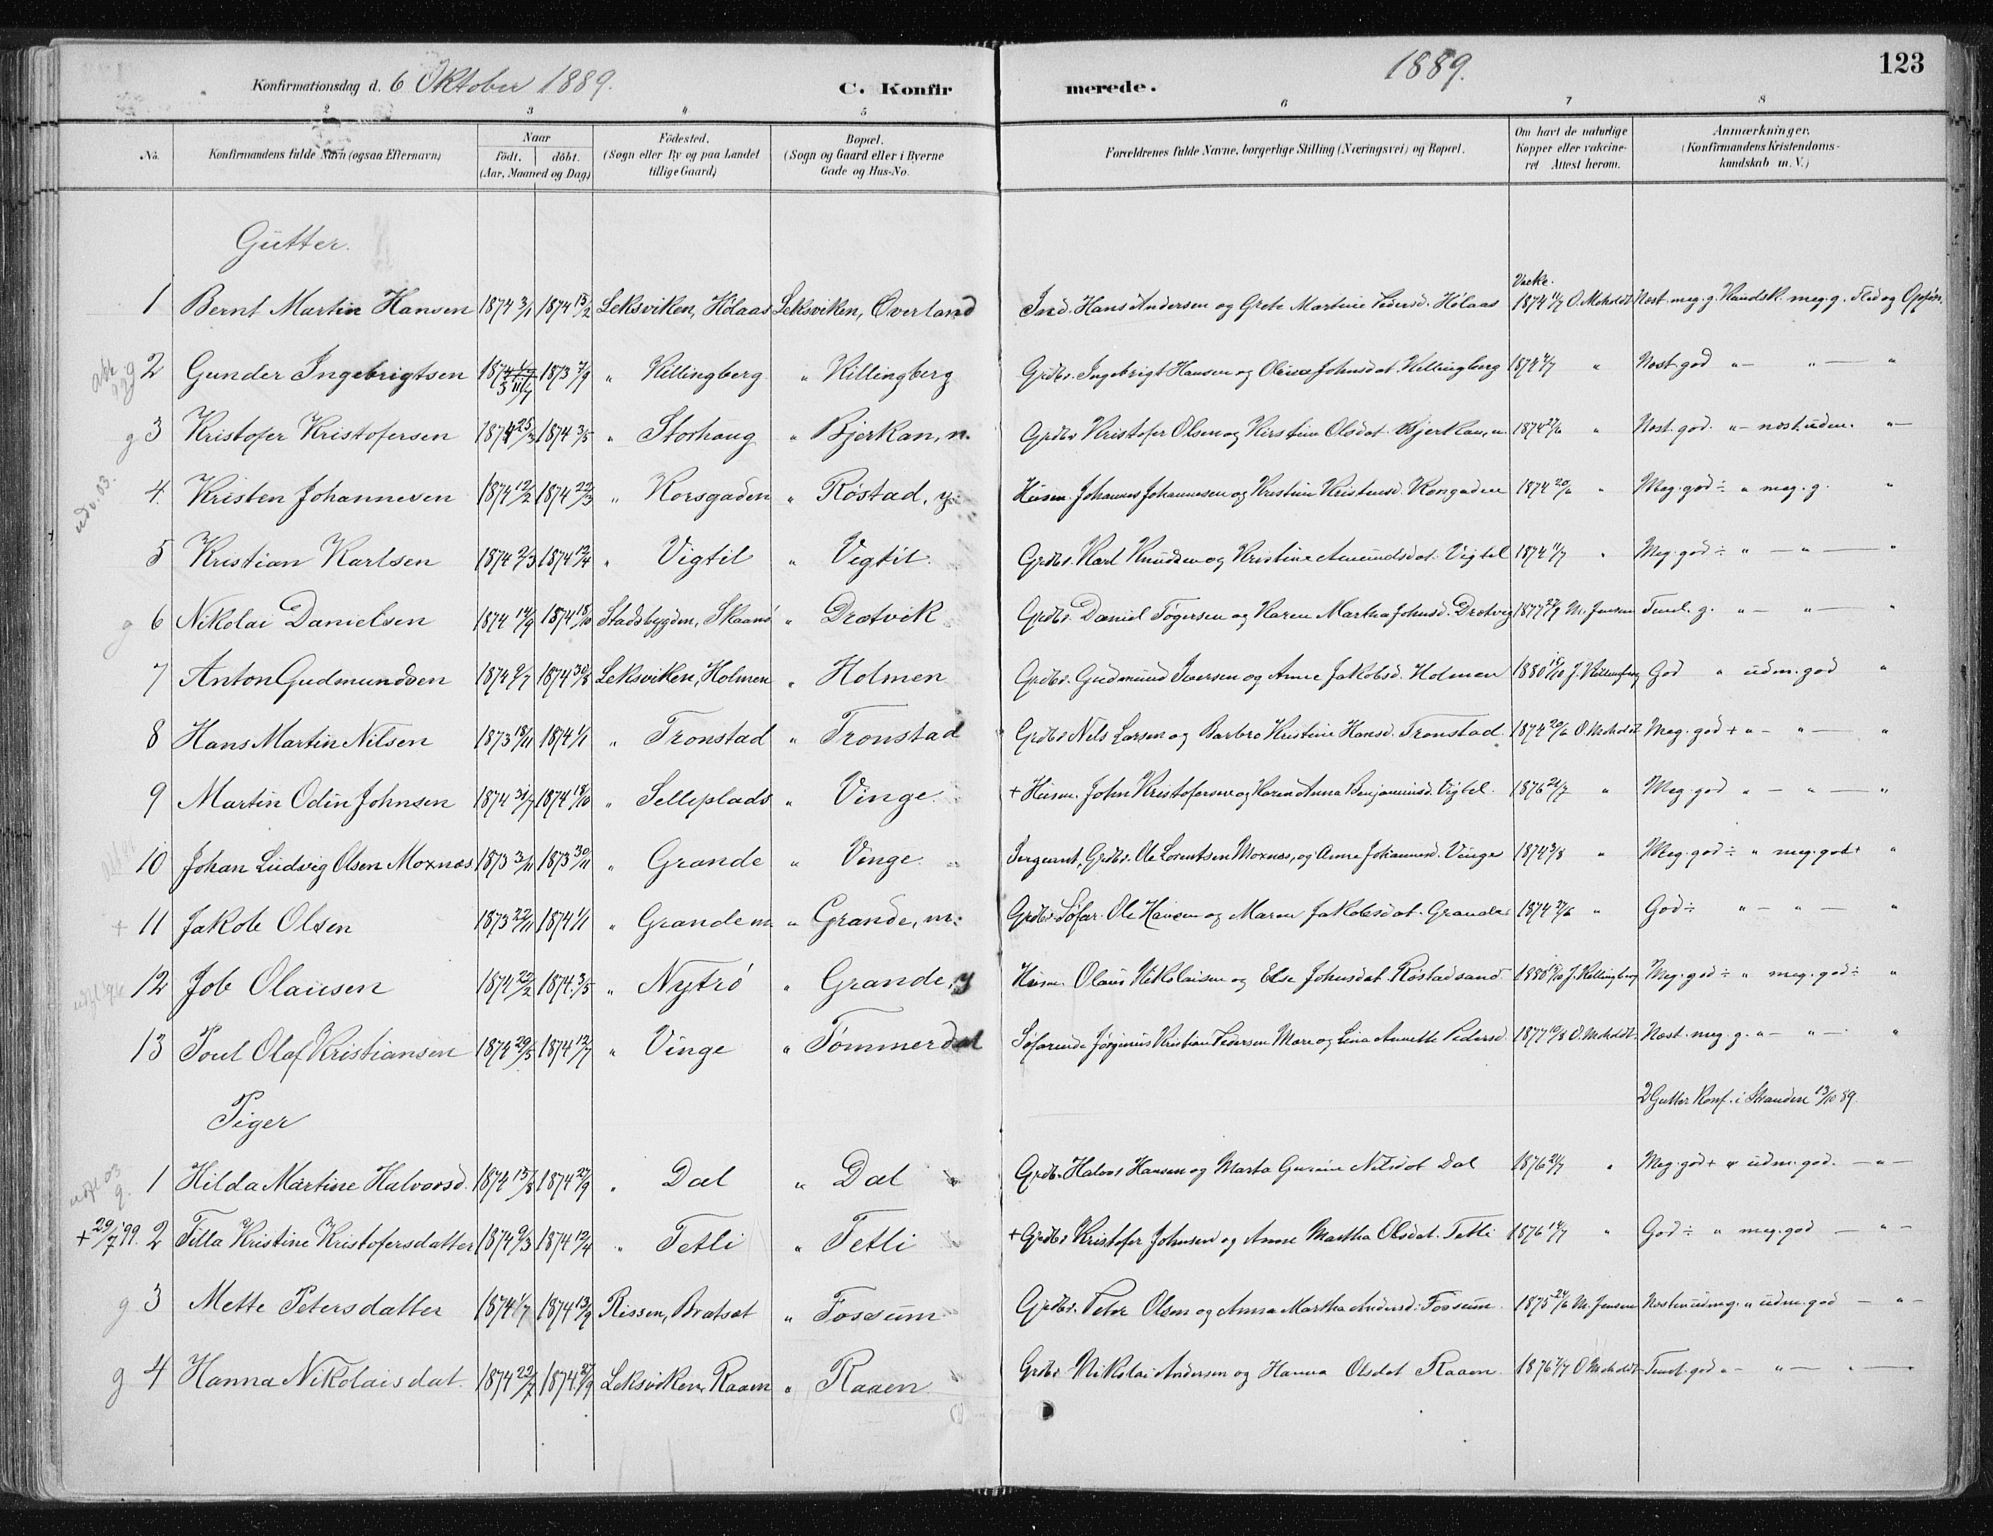 Konfirmationsdag d. 6 Oktober 1889. C. Konfir merede. 1889. 123
2 3 4 5 6 7 8
No. Konfirmandens fulde Navn (ogsaa Efternavn) Naar født. døbt. (Aar, Maaned og Dag) Fødested. (Sogn eller By og paa Landet tillige Gaard) Bopæl. (Sogn og Gaard eller i Byerne Gade og Hus-No. Forældrenes fulde Navne, borgerlige Stilling (Næringsvei) og Bopæl. Om havt de naturlige Kopper eller vakcineret Attest herom. Anmærkninger. (Konfirmandens Kristendomskundskab m. V.)
Gutter.
1 Bernt Martin Hansen 1874 3/1 1874 15/2 Leksviken, Hølaas Leksviken, Overland Ind. Hans Andersen og Grete Martine Pedersd. Hølaas Vacke. 1874 11/7 O. Moholdt Nost. meg. g. Kundsk. meg. g. Flid og Opførs.
2 Gunder Ingebrigtsen 1873 7/9 " Killingberg " Killingberg Grdbr. Ingebrigt Hansen og Olina Johnsdat. Killingberg 1874 4/7 " Nost god " — " — "
g 3 Kristofer Kristofersen 1874 25/3 1874 3/5 " Storhaug " Bjerkan, n. Grdbr Kristofer Olsen og Kirstine Olsdat. Bjerkan, n 1874 27/6 " Nost. god. " nost. udm. " —
udv. 03. 4. Kristen Johannesen 1874 12/2 1874 22/3 " Korsgaden " Røstad, y. Husm. Johannes Johannesen og Kristine Kristensd. Korsgaden 1874 20/6 " Meg. god ÷ " meg. g. "
5 Kristian Karlsen 1874 2/3 1874 12/4 " Vigtil " Vigtil. Grdbr. Karl Knudsen og Kristine Amundsdat. Vigtel 1874 11/7 " Meg. god ÷ " — " — "
g 6 Nikolai Danielsen 1874 14/9 1874 18/10 Stadsbygden, " Drotvik Grdbr. Daniel Tøgersen og Karen Martha Johnsd. Drotvig M. Jensen g. " — " — "
7 Anton Gudmundsen 1874 9/7 1874 30/8 Leksviken, Holmen " Holmen Grdbr. Gudmund Iversen og Anne Jakobsd. Holmen God " udm. god "
8 Hans Martin Nilsen 1873 18/11 1874 1/1 " Tronstad " Tronstad Grdbr Nels Larsen og Barbro Kristine Hansd. Tronstad 1874 20/6 O. Moholdt Meg. god + " — " — "
9 Martin Odin Johnsen 1874 31/7 1874 18/10 " Selleplads " Vinge. + Husm. John Kristofersen og Karen Anna Benjaminsd. Vigtel. 1876 21/7 " Meg. god " — " — "
10 Johan Ludvig Olsen Moxnæs 1873 3/11 1873 30/11 " Grande " Vinge " Sergeant, Grdbr. Ole Lorentsen Moxnæs, og Anne Johannesd. Vinge 1874 3/8 " Meg. god ÷ " meg. god + "
+ 11 Jakob Olsen 1873 22/11 1874 1/1 " Grande m. " Grande, m. Grdbr. Søfar. Ole Hansen og Maren Jakobsdat. Grande 1874 27/6 " God ÷ " — " — "
udfl 96 12 Job Olausen 1874 22/2 1874. 3/5 " Nytrø " Grande, y Husm. Olaus Nikolaisen og Else Johnsdat Røstadsand 1880 J. Killingberg Meg. god ÷ " meg. god ÷ "
13 Poul Olaf Kristiansen 1874 29/5 1874 12/7 " Vinge " Tømmerdal Søfarende Jørginus Kristian Pedersen Moxe og Lina Annette Pedersd. 1877 O. Moholdt Nost. meg. g. " — " — "
2 Gutter Konf. i Stranden 13/10 89.
Piger
udfl 03 g. 1 Hilda Martine Halvorsd. 1874 15/8 1874 27/9 " Dal " Dal " Grdbr. Halvor Hansen og Marta Gurine Nilsdat Dal 1876 21/7 " Meg. god + " udm. god. — " —
+ 29/7 99. 2 Tilla Kristine Kristofersdatter 1874 9/3 1874 12/4 " Tetli " Tetli + Grdbr Kristofer Johnsen og Anne Martha Olsdat. Tetli 1876 14/7 " God ÷ " meg. god — " —
g 3 Mette Petersdatter 1874 1/7 1874 13/9 Rissen, Bratsæt " Fossum Grdbr. Peter Olsen og Anna Martha Andersd. Fossum 1875 24/6 M. Jensen " udm. god — " —
g 4 Hanna Nikolaisdat. 1874 22/7 1874. 27/9 Leksviken, Raaen " Raaen Grdbr Nikolai Andersen og Hanna Olsdat Raaen 1876 7/7 O Moholdt god " — " — " —